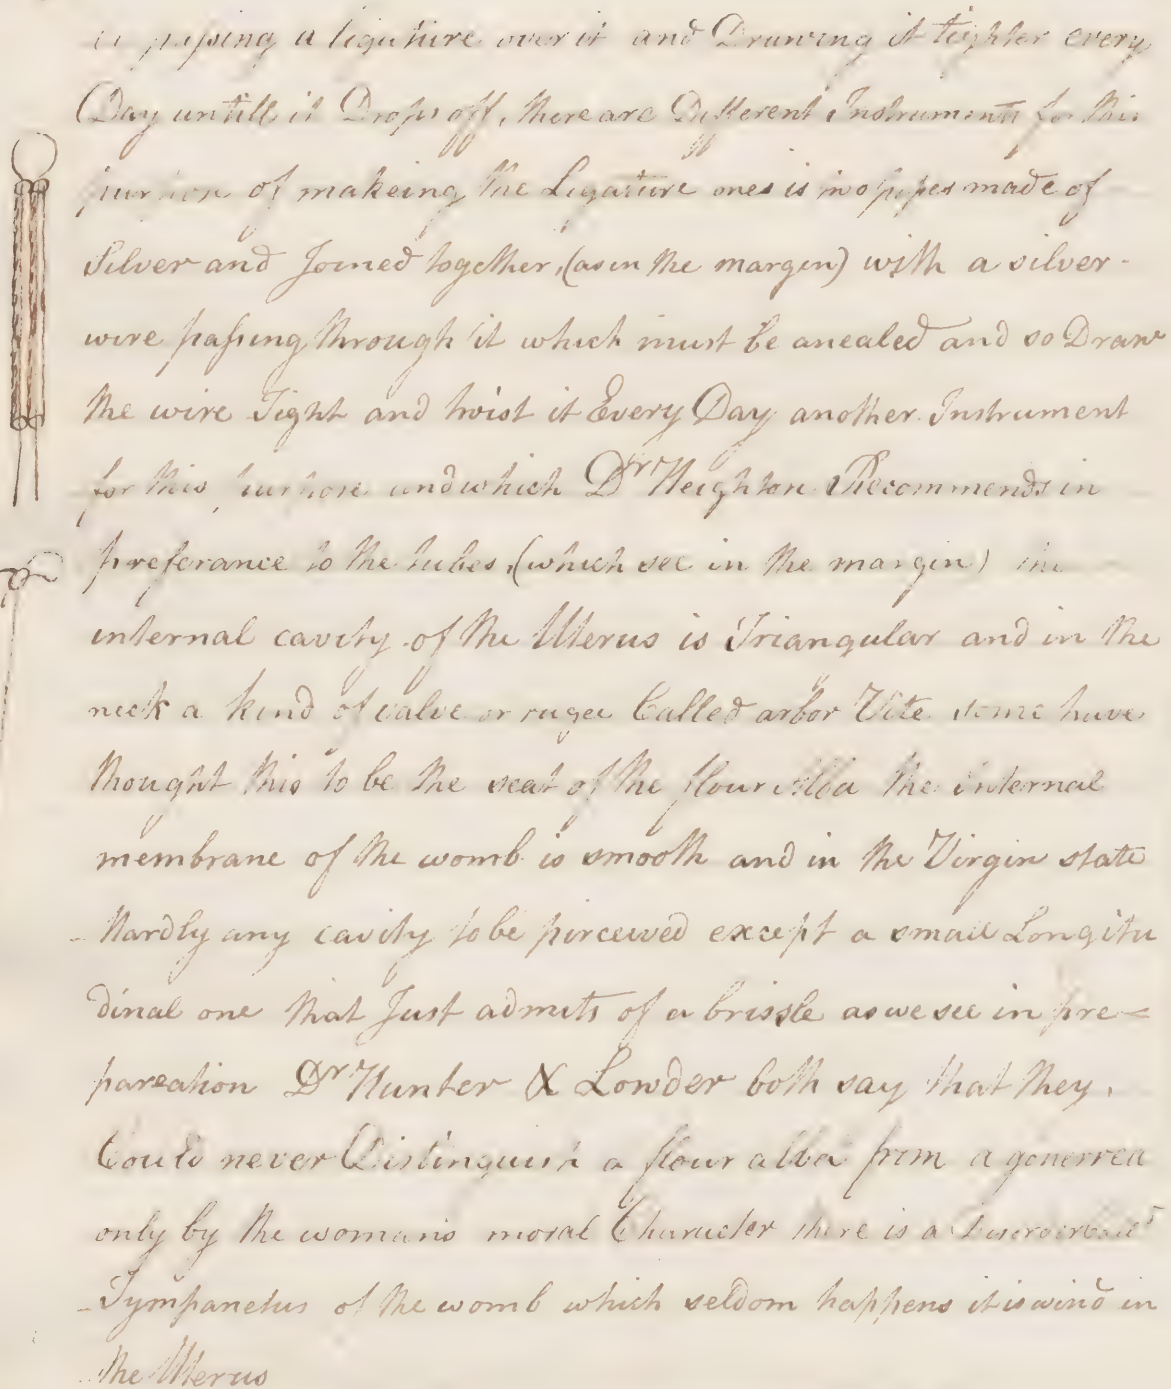 passing a ligature over it and Drawing it tighter every
Day untill it Drops off, there are Different Instruments for this
purpose of makeing the Ligature ones is two pipes made of
Silver and Joined together, (as in the margin) with a silver-
wire passing through it which must be anealed and so Draw
the wire Tight and twist it Every Day another Instrument
for this purpose and which Dr Heighton Recommends in
preferance to the tubes, (which see in the margin) the
internal cavity of the Uterus is Triangular and in the
neck a kind of valve or rugee Called arbor Vite some have
thought this to be the seat of the flour Alba the internal
membrane of the womb is smooth and in the Virgin state
hardly any cavity to be pirceived except a small Longitu
dinal one that Just admits of a brissle as we see in pre=
pareation Dr Hunter & Lowder both say that they
Could never Distinguish a flour alba from a gonerrea
only by the womans moral Character there is a
Tympanetus of the womb which seldom happens it is wind in
the Uterus